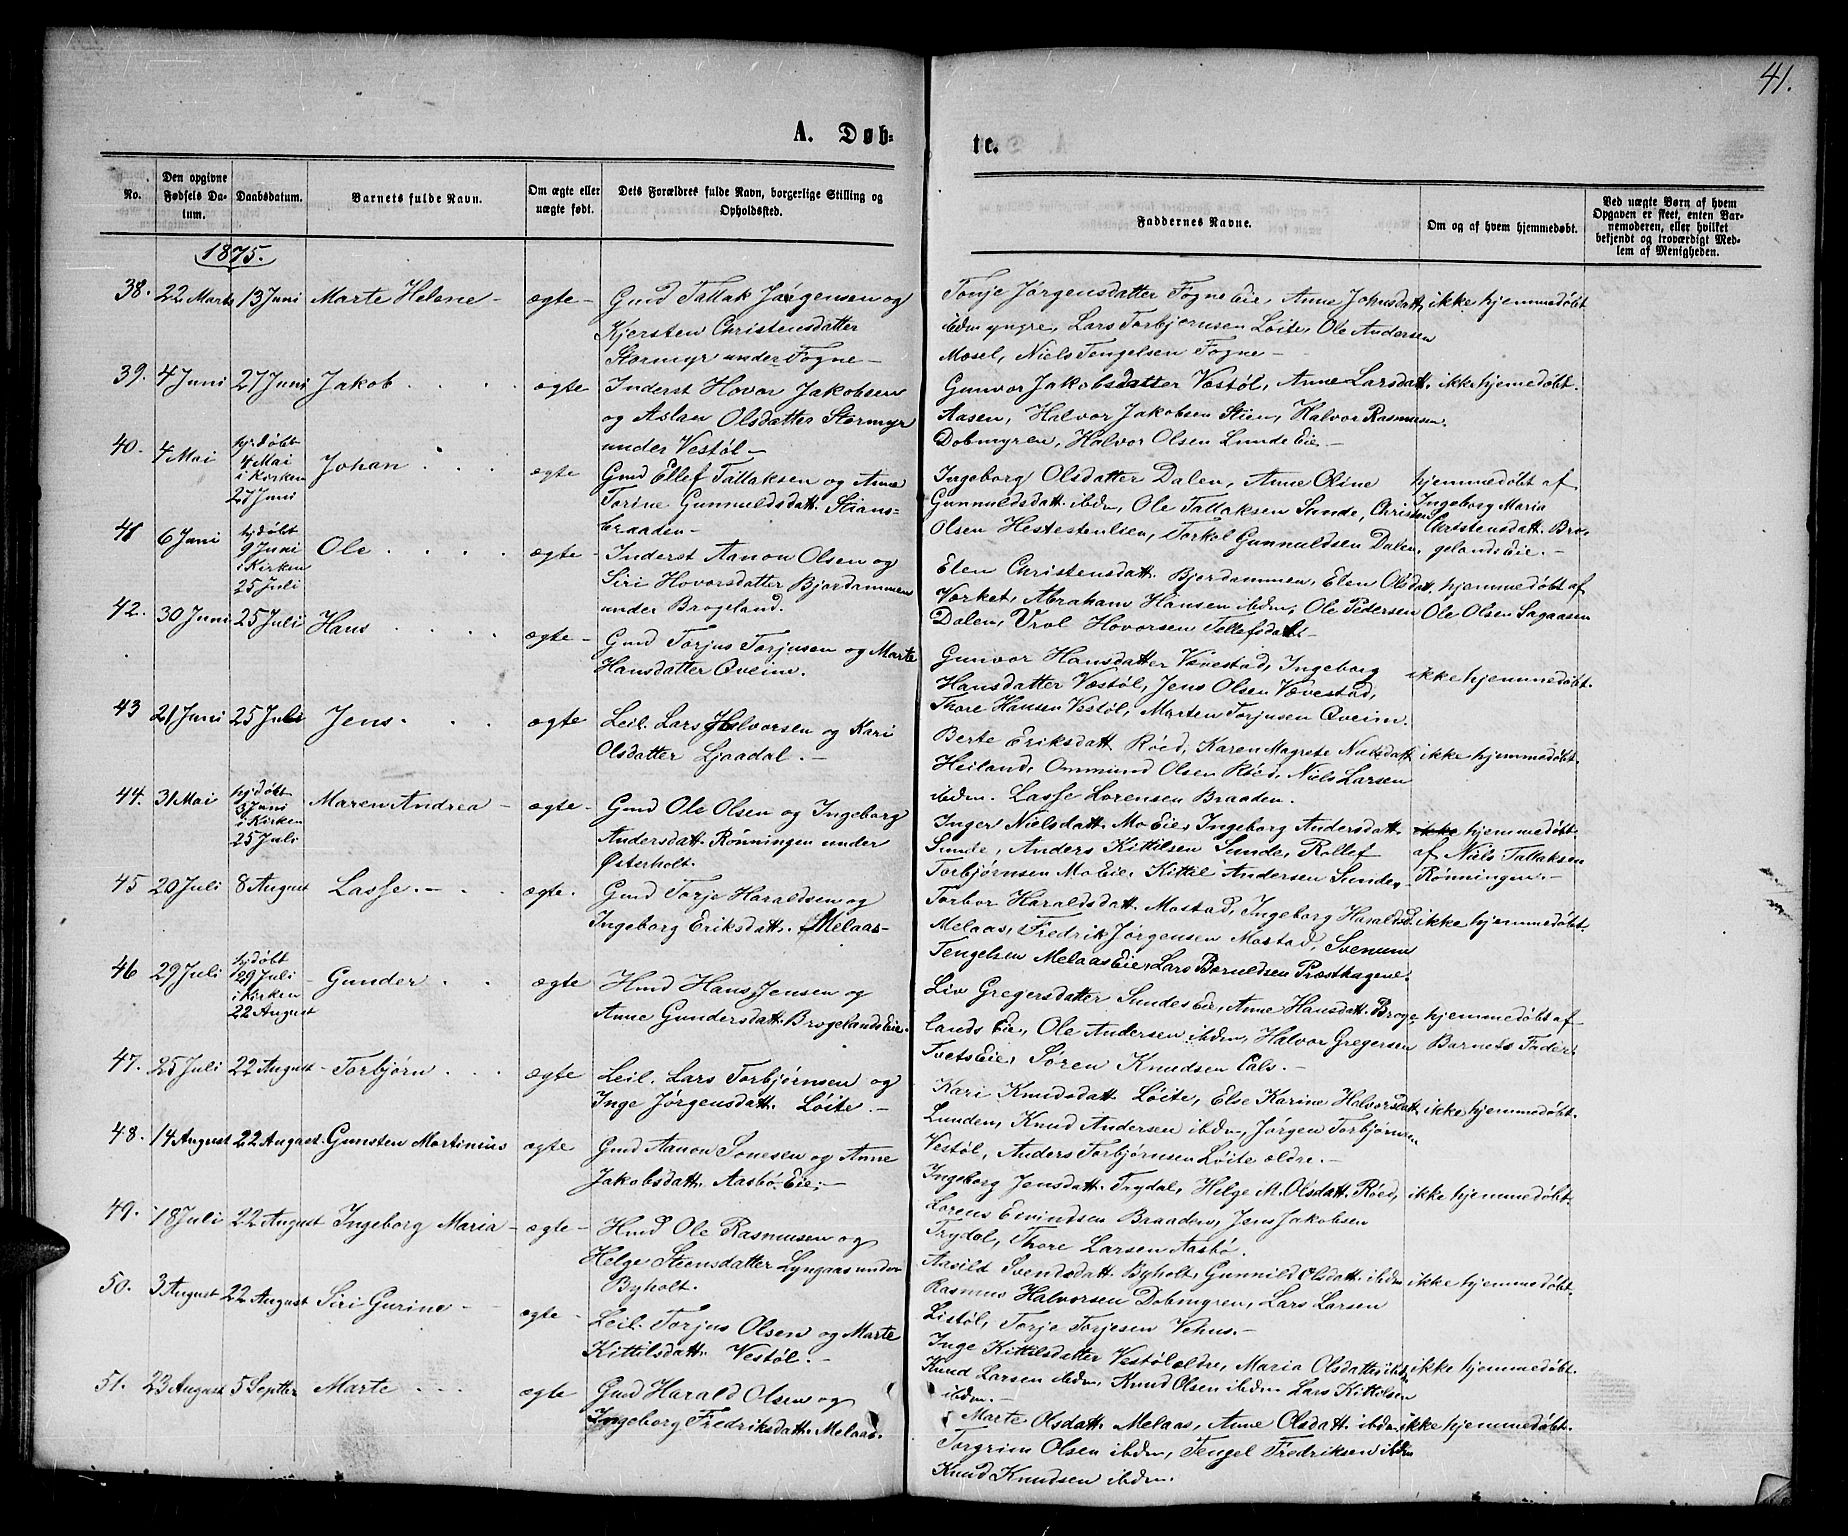 41.
A. Døb-
te.
No.
Den opgivne Fødsels Da-
tum.
Daabsdatum.
Barnets fulde Navn.
Om ægte eller
uægte født.
Dets Forældres fulde Navn, borgerlige Stilling og
Opholdssted.
Faddernes Navne.
Om og af hvem hjemmedøbt.
Ved uægte Børn af hvem
Opgaven er skeet, enten Bar-
nemoderen, eller hvilket
bekjendt og troværdigt Med-
lem af Menigheden.
1875.
38. 22 Marts 13 Juni Marte Helene - ægte - Gmd Tallak Jørgensen og
Kjersten Christensdatter
Stormyr under Fogne -
Tonje Jørgensdatter Fogne Eie, Anne Johnsdatt. ikke hjemmedøbt
ibdm yngre, Lars Torbjørnsen Løite, Ole Andersen
Mosel, Niels Tengelsen Fogne -
39. 4 Juni 27 Juni Jakob ægte Inderst Hovor Jakobsen
og Aslau Olsdatter Stormyr
under Vestøl -
Gunvor Jakobsdatter Vestøl, Anne Larsdatt. ikke hjemmedøbt.
Aasen, Halvor Jakobsen Stien, Halvor Rasmusen
Dobmyren, Halvor Olsen Lunde Eie -
40. 4 Mai hjdøbt
4 Mai
i Kirken
27 Juni
Johan ægte Gmd Ellef Tallaksen og Anne
Torine Gunnuldsdatt. Stians-
braaden -
Ingeborg Olsdatter Dalen, Anne Oline hjemmedøbt af
Gunnuldsdatt. ibdm, Ole Tallaksen Sunde, Christen Ingeborg Maria
Olsen Hestestenlien, Torkel Gunnuldsen Dalen, Christensdatt. Bro-
gelands Eie. -
41 6 Juni hjdøbt
9 Juni
i Kirken
25 Juli
Ole ægte - Inderst Aanon Olsen og
Siri Hovorsdatter Bjordammen
under Brogeland.
Elen Christensdatt. Bjordammen, Elen Olsdatt. hjemmedøbt af
Værket, Abraham Hansen ibdm, Ole Pedersen Ole Olsen Sagaasen
Dalen, Vrol Hovorsen Tellefsdal -
42. 30 Juni 25 Juli Hans ægte - Gmd Torjus Torjusen og Marte
Hansdatter Qveim.
Gunvor Hansdatter Vævestad, Ingeborg ikke hjemmedøbt.
Hansdatter Vestøl, Jens Olsen Vævestad,
Thore Hansen Vestøl, Marten Torjusen Qveim.
43 21 Juni 25 Juli Jens ægte Leil. Lars Halvorsen og Kari
Olsdatter Ljaadal. -
Berte Eriksdatt Røed, Karen Magrete Nielsdatt ikke hjemmedøbt.
Heiland, Ommund Olsen Røed, Niels Larsen
ibdm. Lasse Lorensen Braaden.
44. 31 Mai hjdøbt
3 Juni
i Kirken
25 Juli
Maren Andrea - ægte - Gmd Ole Olsen og Ingeborg
Andersdatt. Rønningen under
Østerholt.
Inger Nielsdatt. Mo Eie, Ingeborg Andersdatt. ikke hjemmedøbt.
Sunde, Anders Kittilsen Sunde, Rollef af Niels Tallaksen
Torbjørnsen Mo Eie, Kittil Andersen Sunde, Rønningen. -
45 20 Juli 8 August Lasse. - ægte. Gmd Torje Haraldsen og
Ingeborg Eriksdatt. Melaas -
Torbor Haraldsdatt. Mostad, Ingeborg Haraldsd. ikke hjemmedøbt.
Melaas, Fredrik Jørgensen Mostad, Svenum
Tengelsen Melaas Eie, Lars Præsthagene.
46 29 Juli hjdøbt
29 Juli
i Kirken
22 August
- Gunder ægte Hmd Hans Jensen og
Anne Gundersdatt. Brogelands Eie.
Liv Gregersdatter Sundes Eie, Anne Hansdatt. Broge- hjemmedøbt af
lands Eie, Ole Andersen ibdm, Halvor Gregersen Barnets Fader.
Tvets Eie, Søren Knudsen Eals. -
47. 25 Juli 22 August - Torbjørn ægte Leil. Lars Torbjørnsen og
Inge Jørgensdatt. Løite. -
Kari Knudsdatt. Løite, Else Karine Halvorsdatt. ikke hjemmedøbt.
Lunden, Knud Andersen ibdm, Jørgen Torbjørnsen
Vestøl, Anders Torbjørnsen Løite ældre. -
48. 14 August 22 August. Gunsten Martinius ægte Gmd Aanon Sonesen og Anne
Jakobsdatt. Aasbø Eie. -
Ingeborg Jensdatt. Trydal, Helge M. Olsdatt. Røed, ikke hjemmedøbt.
Lorens Eivindsen Braaden, Jens Jakobsen
Trydal, Thore Larsen Aasbø.
49. 18 Juli 22 August Ingeborg Maria - ægte - Hmd Ole Rasmusen og
Helge Steensdatter Lyngaas under
Byholt.
Aasild Svendsdatt. Byholt, Gunnild Olsdatt. ibdm ikke hjemmedøbt.
Rasmus Halvorsen Dobmyren, Lars Larsen
Listøl, Torje Torjesen Vehus. -
50. 3 August 22 August Siri Gurine - ægte - Leil. Torjus Olsen og Marte
Kittilsdatt. Vestøl. -
Inge Kittilsdatter Vestøl ældre, Maria Olsdatter ibdm ikke hjemmedøbt.
Knud Larsen ibdm, Knud Olsen ibdm Lars Kittilsen
ibdm. -
51. 23 August 5 Septber Marte ægte Gmd Harald Olsen og
Ingeborg Fredriksdatt. Melaas.
Marte Olsdatt. Melaas, Anne Olsdatt. ibdm. ikke hjemmedøbt.
Torgrim Olsen ibdm, Tengel Fredriksen ibdm
Knud Knudsen ibdm.